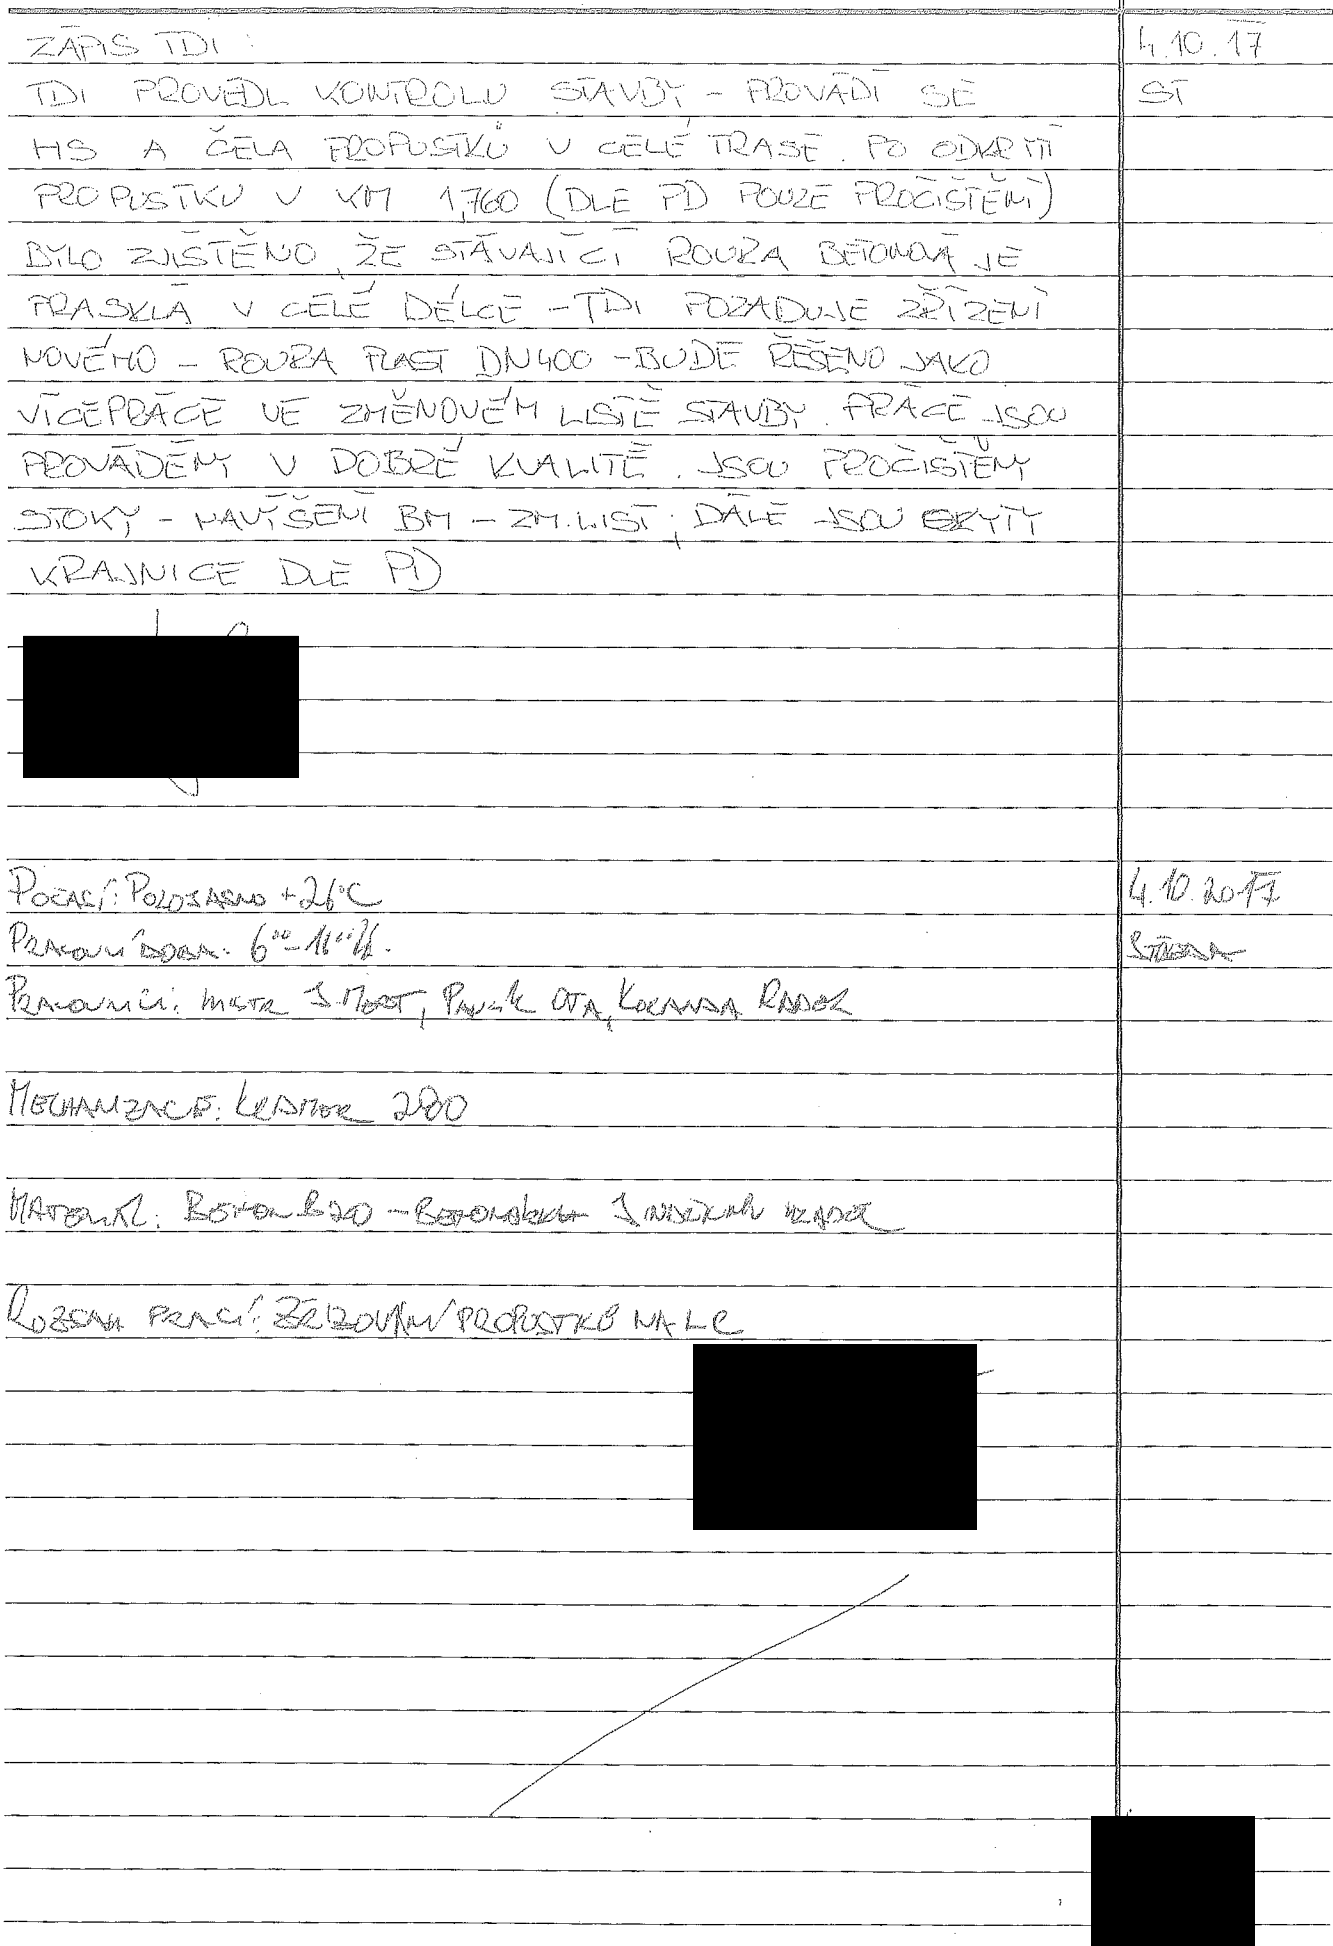 ZÁPIS TDI : 4.10.17
TDI PROVEDL KONTROLU STAVBY - PROVÁDÍ SE ST
HS A ČELA PROPUSTKŮ V CELÉ TRASE. PO ODKRYTÍ
PROPUSTKU V KM 1,760 (DLE PD POUZE PROČIŠTĚNÍ)
BYLO ZJIŠTĚNO, ŽE STÁVAJÍCÍ ROURA BETONOVÁ JE
PRASKLÁ V CELÉ DÉLCE - TDI POŽADUJE ZŘÍZENÍ
NOVÉHO - ROURA PLAST DN400 - BUDE ŘEŠENO JAKO
VÍCEPRÁCE VE ZMĚNOVÉM LISTĚ STAVBY. PRÁCE JSOU
PROVÁDĚNY V DOBRÉ KVALITĚ. JSOU PROČIŠTĚNY
STOKY - NAVÝŠENÍ BM - ZM.LIST; DÁLE JSOU
KRAJNICE DLE PD
POČASÍ: POLOJASNO +21°C 4.10.2017
PRACOVNÍ DOBA: 6⁰⁰- STŘEDA
PRACOVNÍCI: MISTR J. , PAVLÍK OTA, KORANDA RADEK
MECHANIZACE: KRAMER 280
MATERIÁL: BETON B20 - BETONÁRKA JINDŘICHŮV HRADEC
ROZSAH PRACÍ: ZŘIZOVÁNÍ PROPUSTKŮ NA LC